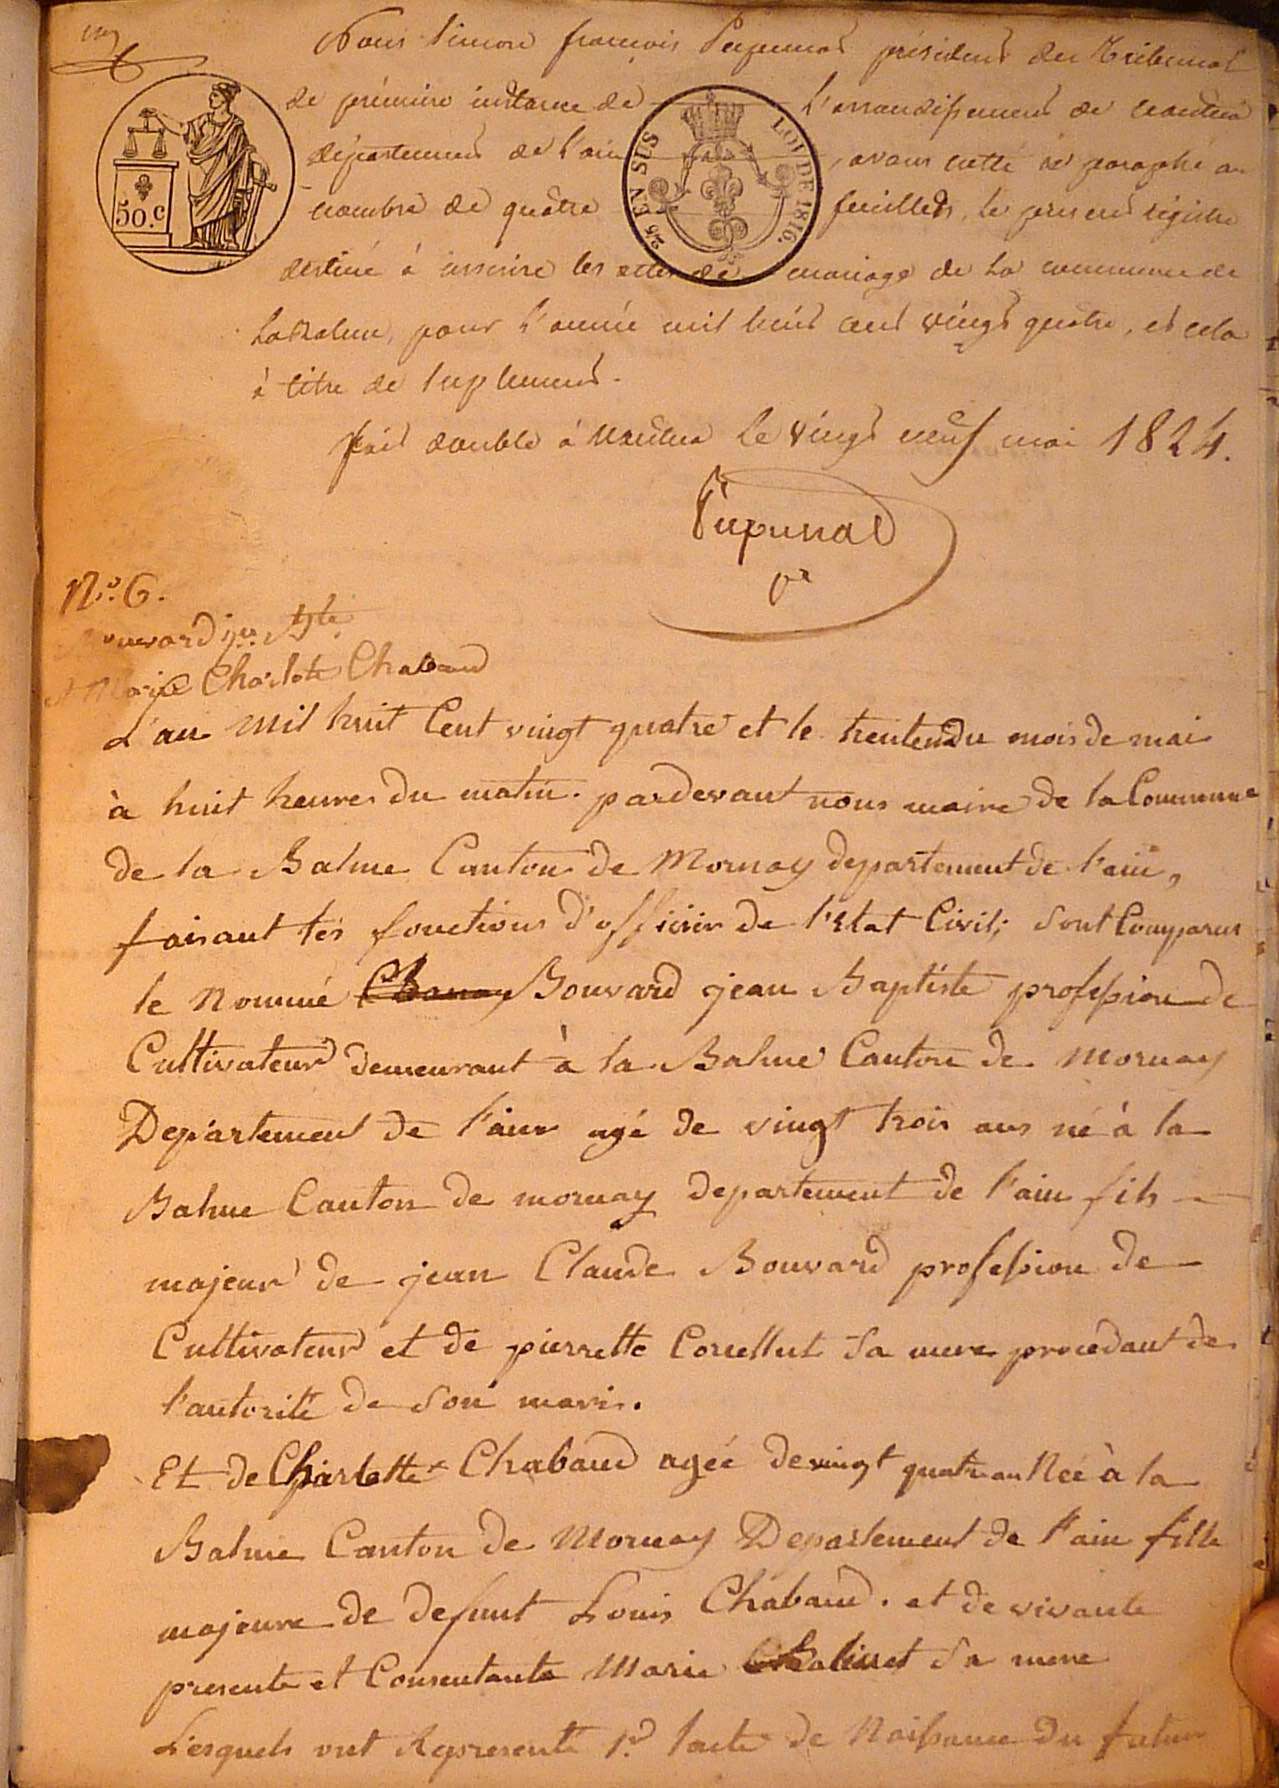 Nous Simon françois président du Tribunal
de prémière instance de L'arrondissement de Nantua
département de l'ain, avons cotté et paraphé au
nombre de quatre feuillets, le present régistre
destiné à inscrire les actes de mariage de La commune de
LaBalme, pour L'année mil huit cent vingt quatre, et cela
à titre de suplement.
50.c
25.c EN SUS
LOI DE 1816.
fait double à Nantua Le vingt neuf mai 1824.
N.o 6.
Bouvard jn Bte
et Marie Charlote Chabaud
L'an mil huit Cent vingt quatre et le trente du mois de mai
à huit heures du matin. pardevant nous maire de la Commune
de la Balme Canton de Mornay departement de l'ain,
faisant les fonctions d'officier de l'Etat Civil; sont Comparus
le Nommé Bouvard jean Baptiste profession de
Cultivateur demeurant à la Balme Canton de Mornay
Departement de l'ain agé de vingt trois ans né à la
Balme Canton de mornay departement de l'ain fils
majeur de jean Claude Bouvard profession de
Cultivateur et de pierrette sa mere procedant de
l'autorité de son mari.
Et de Charlotte Chabaud agée de vingt quatre an Née à la
Balme Canton de Mornay Departement de l'ain fille
majeure de defunt Louis Chabaud. et de vivante
presente et Consentante Marie sa mere
Lesquels ont Representé 1.o l'acte de Naissance du futur